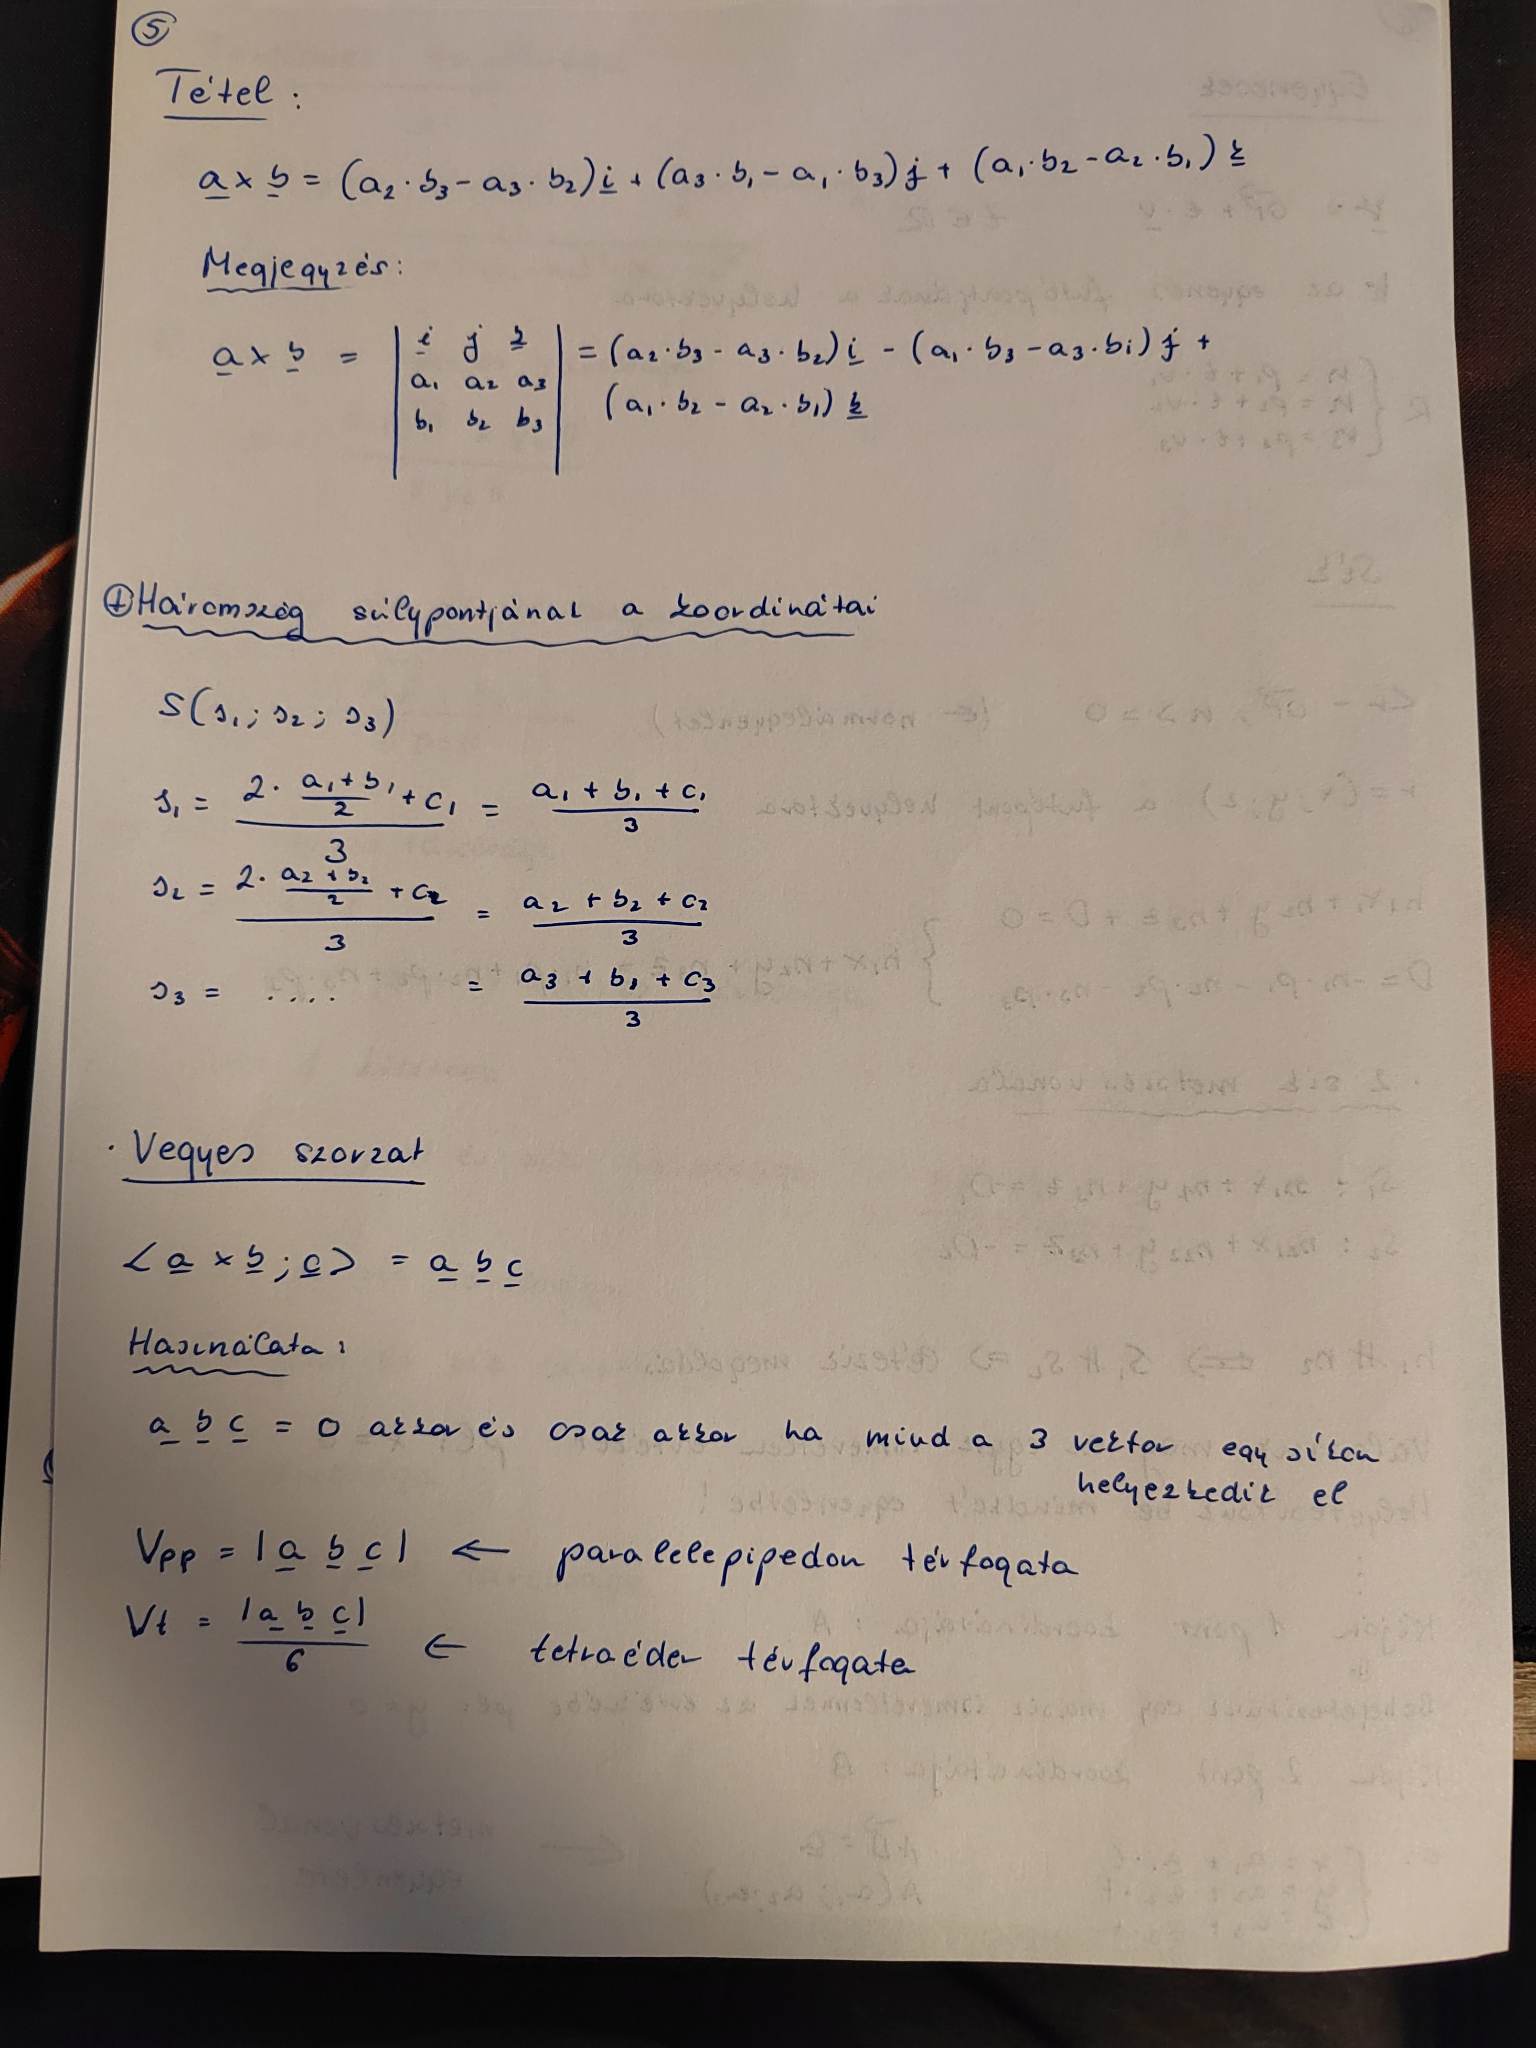 5
Tétel:
a × b = (a₂·b₃ - a₃·b₂)i + (a₃·b₁ - a₁·b₃)j + (a₁·b₂ - a₂·b₁)k
Megjegyzés:
a × b = | i j k | = (a₂·b₃ - a₃·b₂)i - (a₁·b₃ - a₃·bi)j +
a₁ a₂ a₃ (a₁·b₂ - a₂·b₁)k
b₁ b₂ b₃
Háromszög súlypontjának a koordinátái
S(s₁; s₂; s₃)
s₁ = (2·(a₁+b₁)/2 + c₁)/3 = (a₁ + b₁ + c₁)/3
s₂ = (2·(a₂+b₂)/2 + c₂)/3 = (a₂ + b₂ + c₂)/3
s₃ = .... = (a₃ + b₁ + c₃)/3
· Vegyes szorzat
<a × b; c> = a b c
Használata:
a b c = 0 akkor és csak akkor ha mind a 3 vektor egy síkon
helyezkedik el
Vpp = |a b c| ← paralelepipedon térfogata
Vt = |a b c|/6 ← tetraéder térfogata